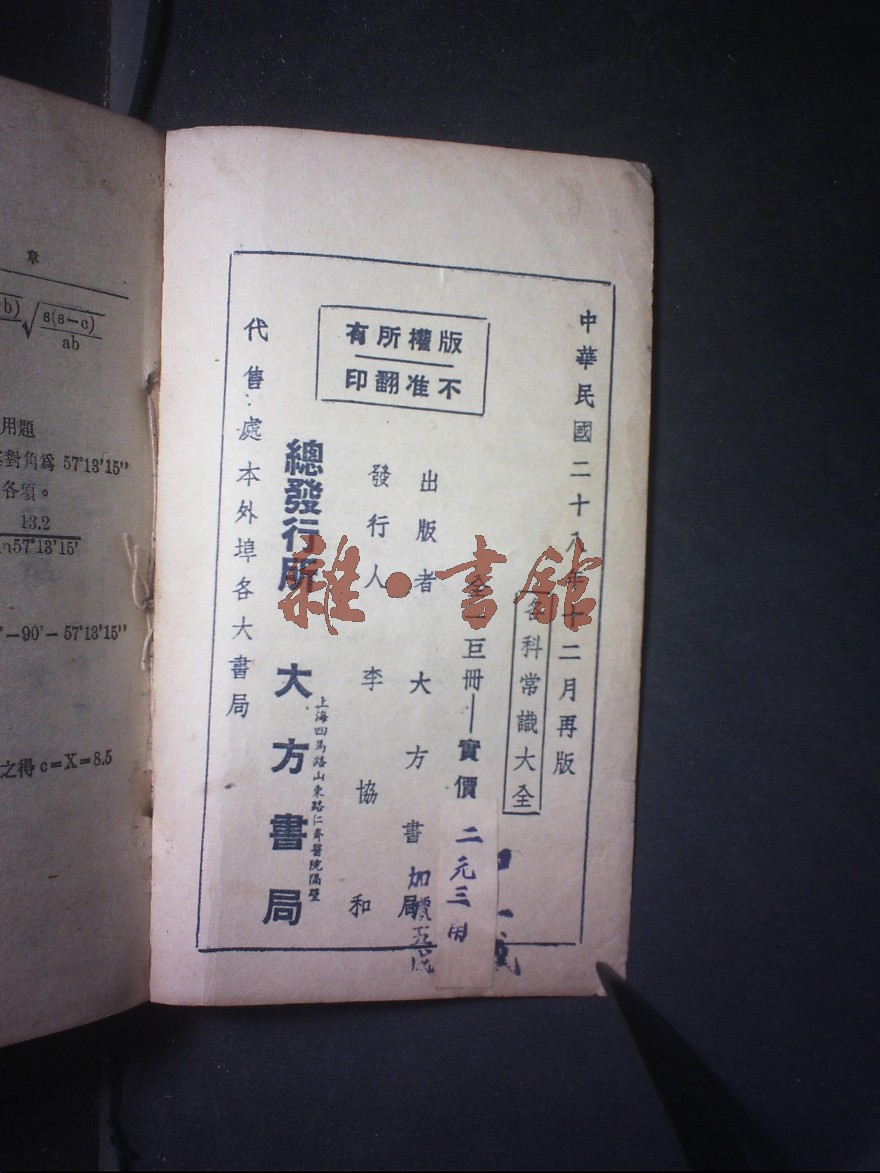 中華民國二十八年十二月再版
各科常識大全
全一巨冊—實價 二元三角
加價五成
出版者 大方書局
發行人 李協和
版權所有
不准翻印
總發行所 大方書局
上海四馬路山東路仁濟醫院隔壁
代售處本外埠各大書局
雜·書館
章
s(s-c)
ab
用題
對角為 57°13'15"
各項。
13.2
57°13'15'
-90°-57°13'15"
之得 c=X=8.5